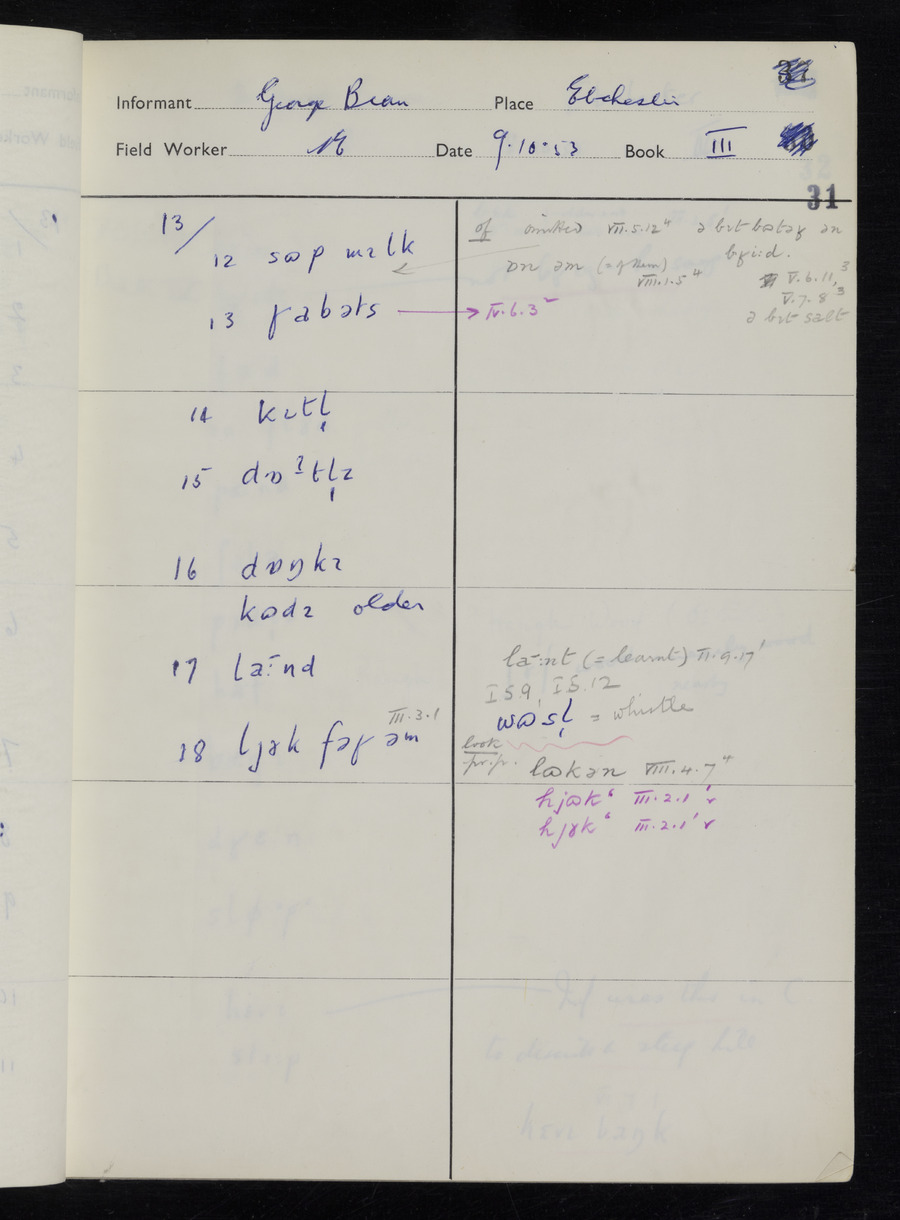 Informant George Bean Place Ebchester
Field Worker Date 9.10.53 Book III
31
13/
12 sʊp mɪlk
13 ɼabəts
14 kɪtl̩
15 dɒʔtl̩ɪ
16 dɒŋkɪ
kʊdɪ older
17 la:nd
18 ljɤk fəɼ əm III.3.1
of omitted VII.5.12⁴ ə bɪt bʊtəɼ ən bɼi:d.
ɒn əm (= of them) VIII.1.5⁴
V.6.11,³
V.7.8³
ə bɪt salt
→ IV.6.3²
la:nt (= learnt) II.9.17'
I.5.9, I.5.12
wʊsl̩ = whistle
look
pr.p. lʊkən VIII.4.7⁴
hjʊkʻ III.2.1'v
hjɤkʻ III.2.1'v